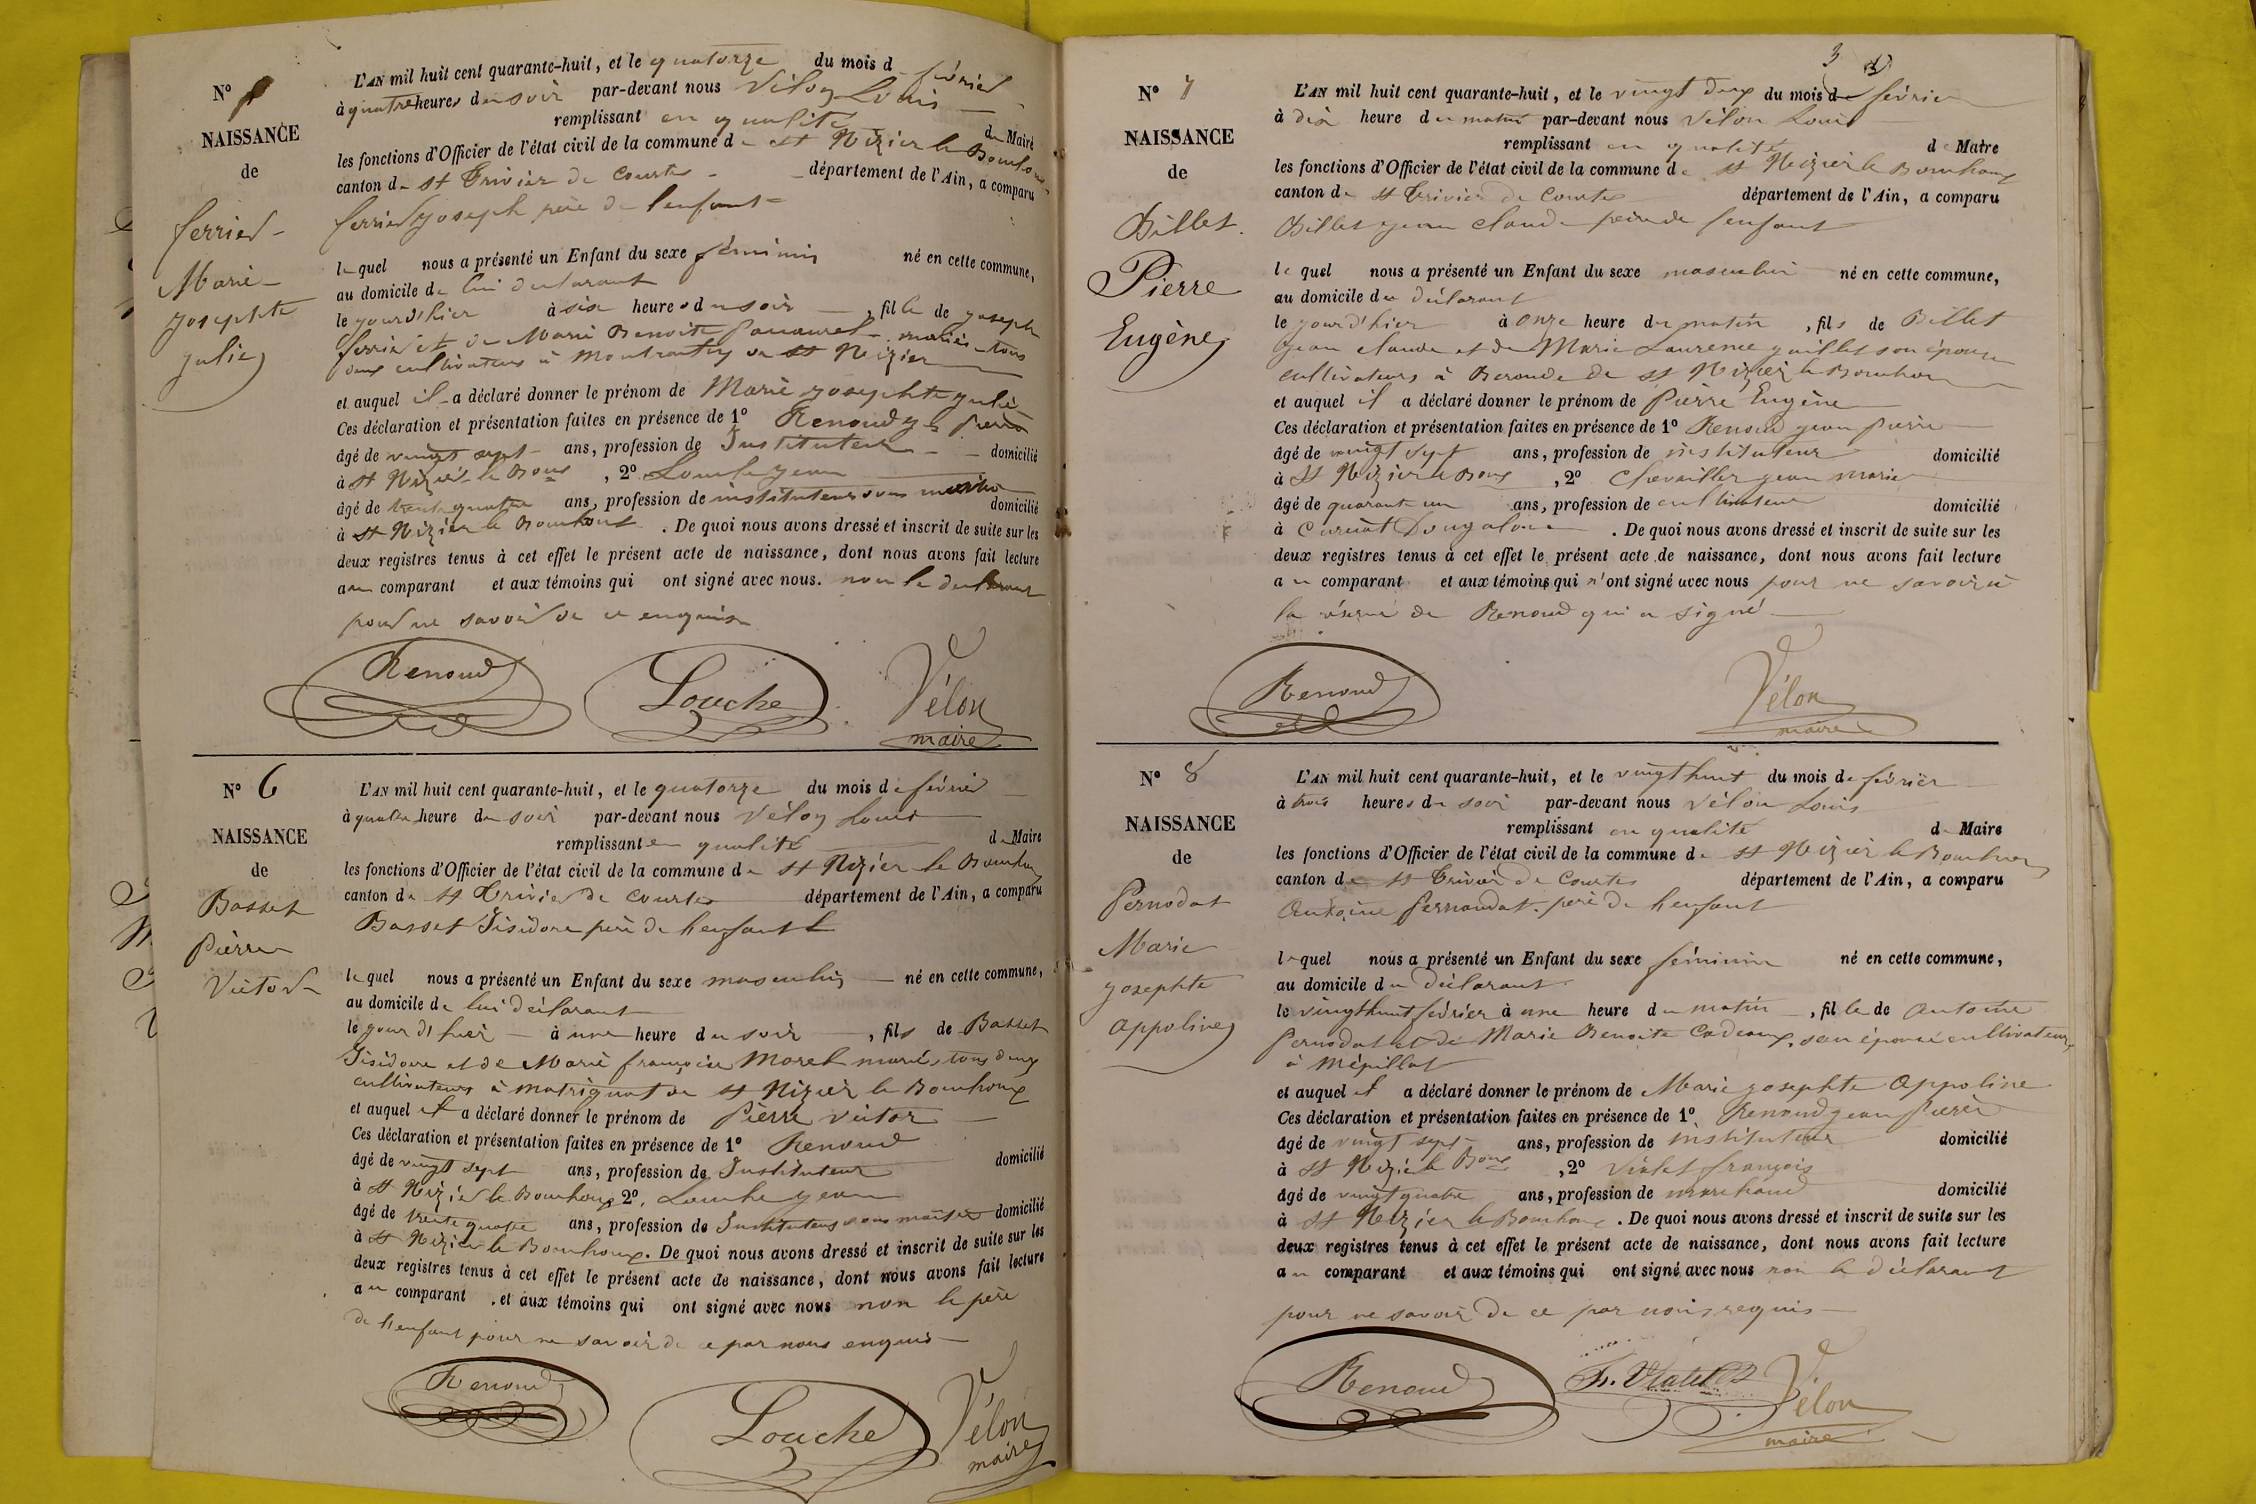 N°
NAISSANCE
de
ferrier
Marie
josephte
julie
L'AN mil huit cent quarante-huit, et le quatorze du mois d février
à quatre heures du soir par-devant nous Vélon Louis
remplissant en qualité de Maire
les fonctions d'Officier de l'état civil de la commune de St Nizier le Bouchoux
canton de St Trivier de Courtes département de l'Ain, a comparu
ferrier joseph père de l'enfant
lequel nous a présenté un Enfant du sexe féminin né en cette commune,
au domicile de lui déclarant
le jour d'hier à six heures du soir, fille de joseph
ferrier et de Marie Benoite mariés tous
deux cultivateurs à de St Nizier
et auquel il a déclaré donner le prénom de Marie josephte julie
Ces déclaration et présentation faites en présence de 1° Renoud jn pierre
âgé de vingt sept ans, profession de Instituteur domicilié
à St Nizier le Boux, 2° Louche jean
âgé de trente quatre ans, profession de instituteur sous maitre domicilié
à St Nizier le Bouchoux. De quoi nous avons dressé et inscrit de suite sur les
deux registres tenus à cet effet le présent acte de naissance, dont nous avons fait lecture
au comparant et aux témoins qui ont signé avec nous. non le déclarant
pour ne savoir de ce enquis
Renoud Louche Vélon
maire
N° 6
NAISSANCE
de
Basset
Pierre
Victor
L'AN mil huit cent quarante-huit, et le quatorze du mois de février
à quatre heure du soir par-devant nous Vélon Louis
remplissant en qualité de Maire
les fonctions d'Officier de l'état civil de la commune de St Nizier le Bouchoux
canton de St Trivier de Courtes département de l'Ain, a comparu
Basset Isidore père de l'enfant
lequel nous a présenté un Enfant du sexe masculin né en cette commune,
au domicile de lui déclarant
le jour d'hier à une heure du soir, fils de Basset
Isidore et de Marie françoise Morel mariés, tous deux
cultivateurs à Matrignat de St Nizier le Bouchoux
et auquel il a déclaré donner le prénom de Pierre victor
Ces déclaration et présentation faites en présence de 1° Renoud
âgé de vingt sept ans, profession de Instituteur domicilié
à St Nizier le Bouchoux 2°. Louche jean
âgé de trente quatre ans, profession de Instituteur sous maitre domicilié
à St Nizier le Bouchoux. De quoi nous avons dressé et inscrit de suite sur les
deux registres tenus à cet effet le présent acte de naissance, dont nous avons fait lecture
au comparant, et aux témoins qui ont signé avec nous non le père
de l'enfant pour ne savoir de ce par nous enquis
Renoud Louche Vélon
maire
3
N° 7
NAISSANCE
de
Billet
Pierre
Eugène
L'AN mil huit cent quarante-huit, et le vingt deux du mois de février
à dix heure du matin par-devant nous Vélon Louis
remplissant en qualité de Maire
les fonctions d'Officier de l'état civil de la commune de St Nizier le Bouchoux
canton de St Trivier de Courtes département de l'Ain, a comparu
Billet jean claude père de l'enfant
lequel nous a présenté un Enfant du sexe masculin né en cette commune,
au domicile du déclarant
le jour d'hier à onze heure du matin, fils de Billet
jean claude et de Marie Laurence guillet son épouse
cultivateurs à Beroude de St Nizier le Bouchoux
et auquel il a déclaré donner le prénom de Pierre Eugène
Ces déclaration et présentation faites en présence de 1° Renoud jean pierre
âgé de vingt sept ans, profession de instituteur domicilié
à St Nizier le Boux, 2° Chevaillier jean marie
âgé de quarante un ans, profession de cultivateur domicilié
à Curciat Dongalon. De quoi nous avons dressé et inscrit de suite sur les
deux registres tenus à cet effet le présent acte de naissance, dont nous avons fait lecture
au comparant et aux témoins qui n'ont signé avec nous pour ne savoir à
la réserve de Renoud qui a signé
Renoud Vélon
maire
N° 8
NAISSANCE
de
Pernodat
Marie
josephte
appoline
L'AN mil huit cent quarante-huit, et le vingt huit du mois de février
à trois heures du soir par-devant nous Vélon Louis
remplissant en qualité de Maire
les fonctions d'Officier de l'état civil de la commune de St Nizier le Bouchoux
canton de St Trivier de Courtes département de l'Ain, a comparu
Antoine Pernoudat père de l'enfant
lequel nous a présenté un Enfant du sexe féminin né en cette commune,
au domicile du déclarant
le vingt huit février à une heure du matin, fille de antoine
Pernodat et de Marie Benoite Cadeaux, son épouse cultivateurs
à Mépillat
et auquel il a déclaré donner le prénom de Marie josephte appoline
Ces déclaration et présentation faites en présence de 1° Renoud jean pierre
âgé de vingt sept ans, profession de instituteur domicilié
à St Nizier le Boux, 2° Violet françois
âgé de vingt quatre ans, profession de marchand domicilié
à St Nizier le Bouchoux. De quoi nous avons dressé et inscrit de suite sur les
deux registres tenus à cet effet le présent acte de naissance, dont nous avons fait lecture
au comparant et aux témoins qui ont signé avec nous non le déclarant
pour ne savoir de ce par nous requis
Renoud Vélon
maire